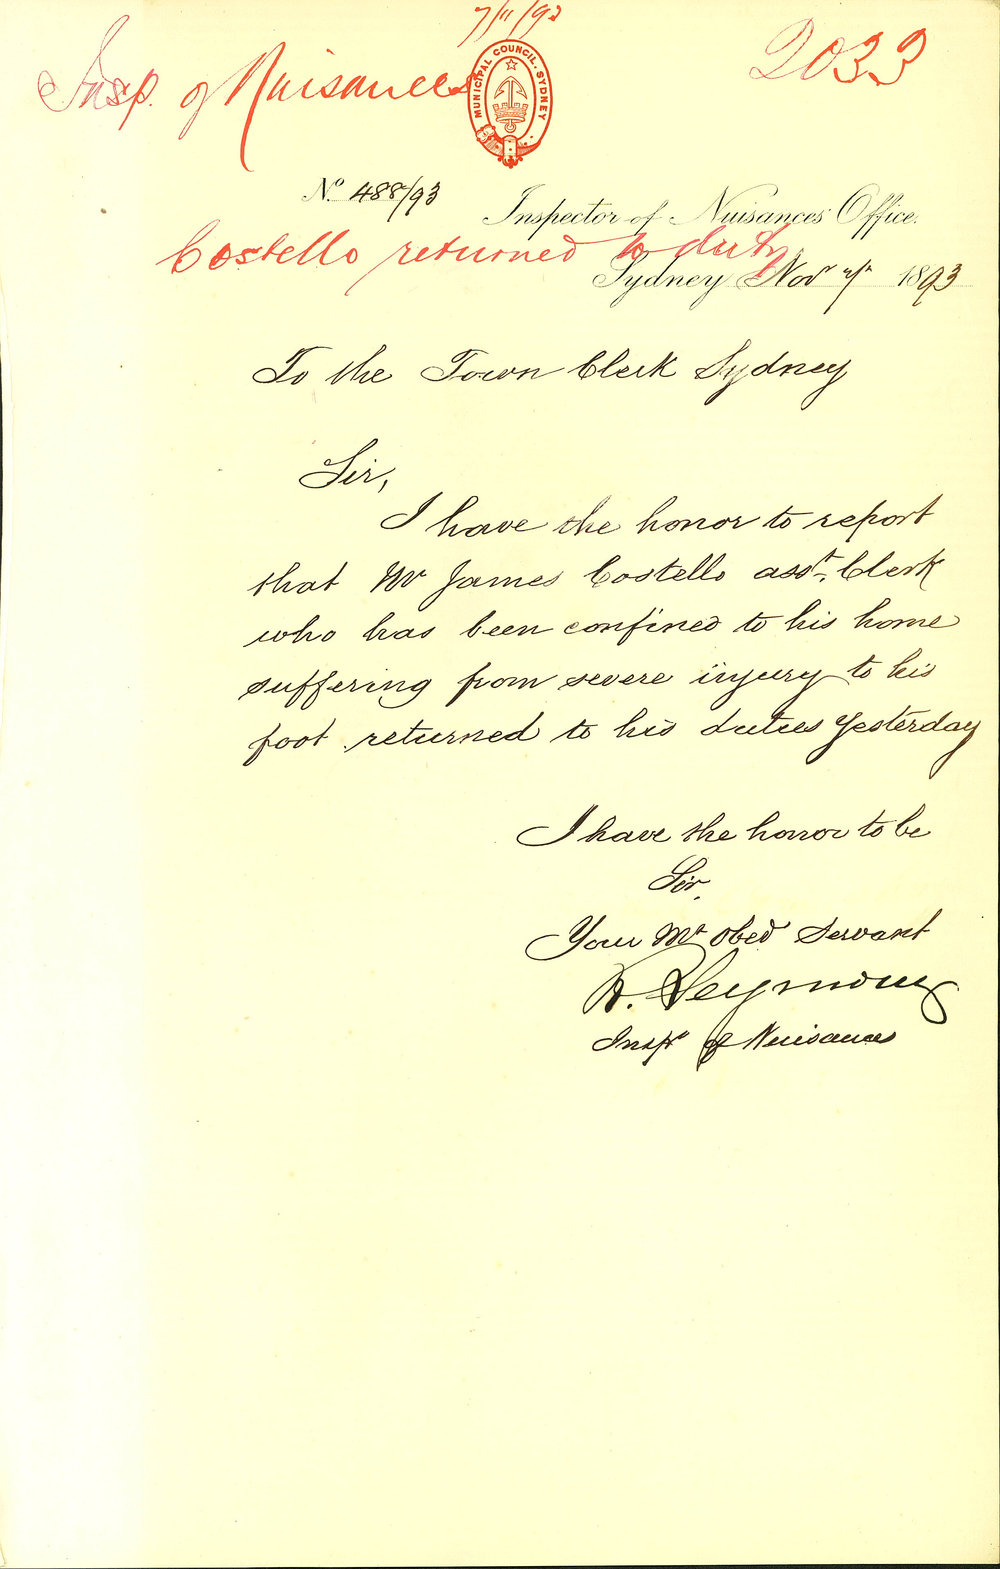 7/11/93
Insp. of Nuisances
2033
MUNICIPAL COUNCIL. SYDNEY
No. 488/93
Inspector of Nuisances Office.
Costello returned to duty
Sydney Novr 7th 1893
To the Town Clerk Sydney
Sir,
I have the honor to report
that Mr James Costello asst. Clerk
who has been confined to his home
suffering from severe injury to his
foot returned to his duties Yesterday
I have the honor to be
Sir,
Your Mt Obed Servant
R. Seymour
Inspr of Nuisances